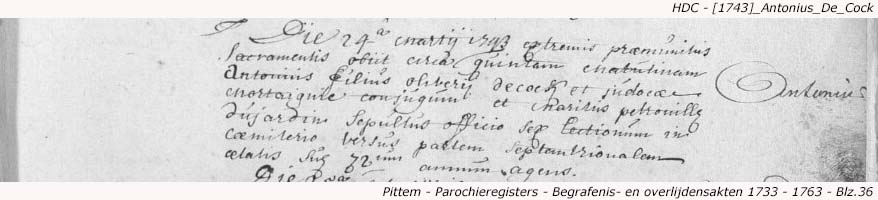 HDC - [1743]_Antonius_De_Cock
Die 24ª martij 1743 extremis præmunitus
Sacramentis obiit circa quintam matutinam
Antonius filius oliverij decock et judocæ
mortaigne conjugum et maritus petronillæ
dujardin Sepultus officio sex Lectionum in
cœmiterio versus partem septentrionalem
ætatis suæ 72um annum agens.
Antonius
Pittem - Parochieregisters - Begrafenis- en overlijdensakten 1733 - 1763 - Blz.36